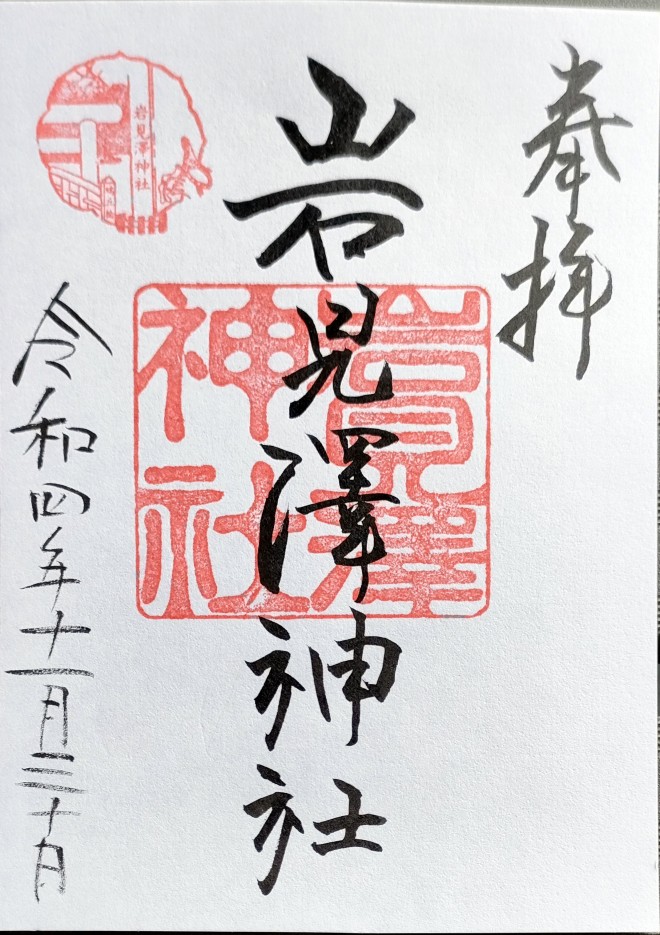 奉拝
岩見澤神社
岩見澤神社
岩見澤神社
令和四年十一月三十日